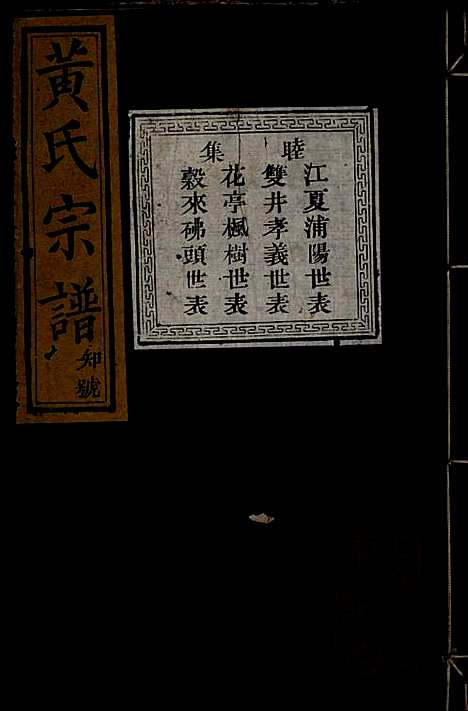 睦集
江夏浦陽世表
雙井孝義世表
花亭楓樹世表
穀來砩頭世表
黃氏宗譜
知號